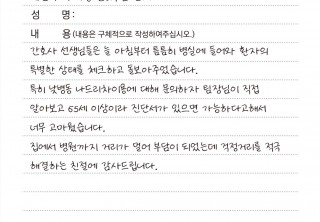 성 명:
내 용 (내용은 구체적으로 작성하여주십시오.)
간호사 선생님들은 늘 아침부터 틈틈히 병실에 들어와 환자의
특별한 상태를 체크하고 돌보아주었습니다.
특히 낮병동 나드리차이용에 대해 문의하자 팀장님이 직접
알아보고 65세 이상이라 진단서가 있으면 가능하다고해서
너무 고마웠습니다.
집에서 병원까지 거리가 멀어 부담이 되었는데 걱정거리를 적극
해결하는 친절에 감사드립니다.